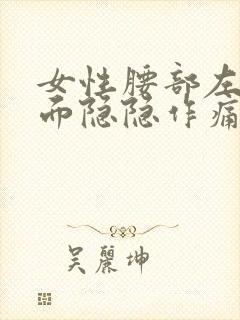 女性腰部左
而隐隐作痛
吴麗坤